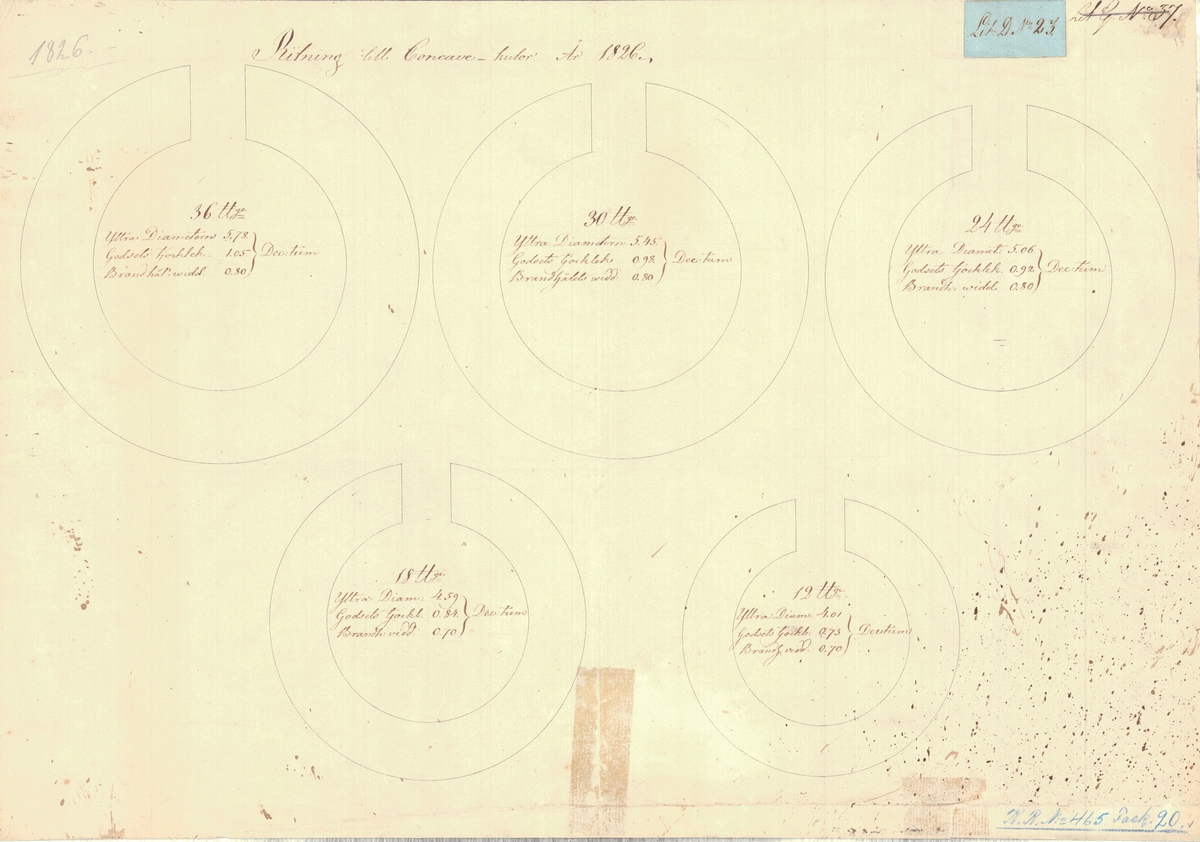 1826.
Ritning till Concave-kulor År 1826.
Lit. D. No 23.
Lit G. No 37.
36 ℔ge
Yttra Diametern 5.78.
Godsets tjocklek. 1.05
Brandhål: widd. 0.80
Dec: tum
30 ℔ge
Yttra Diametern 5.45.
Godsets tjocklek 0.98.
Brandhålets widd 0.80
Dec: tum
24 ℔ge
Yttra Diamet. 5.06.
Godsets tjocklek 0.92
Brandh. widd. 0.80
Dec: tum
18 ℔ge
Yttra Diam. 4.59
Godsets tjockl. 0.84.
Brandh. widd. 0.70
Dec: tum
12 ℔ge
Yttra Diam. 4.01
Godsets tjockl. 0.73
Brandh. widd. 0.70
Dec: tum
K. R. No 465 Fack. 20.